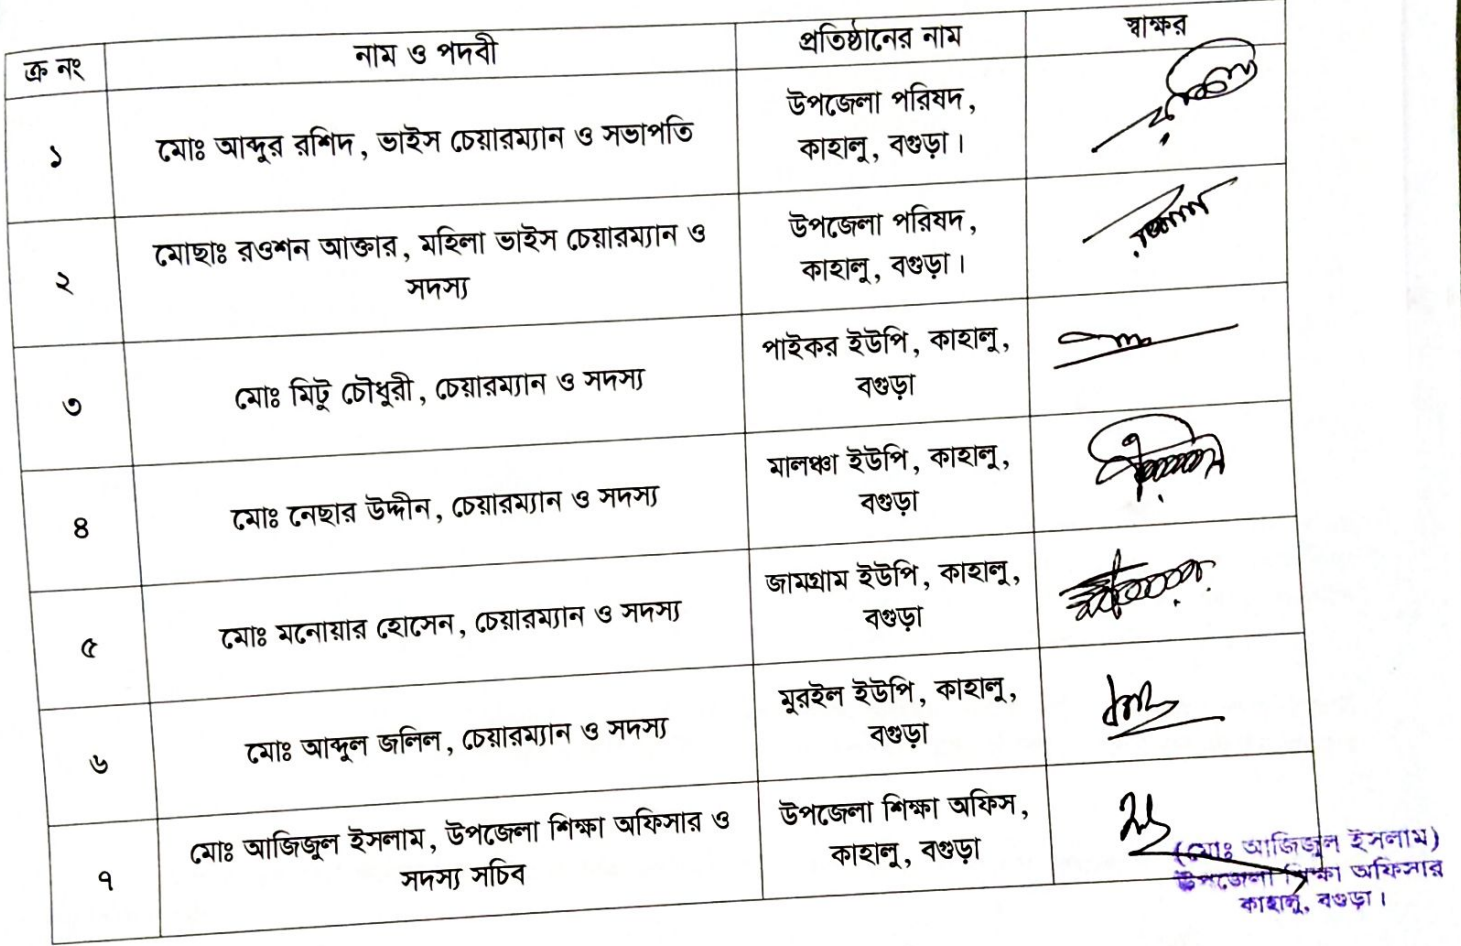 ক্র নং নাম ও পদবী প্রতিষ্ঠানের নাম স্বাক্ষর
১ মোঃ আব্দুর রশিদ, ভাইস চেয়ারম্যান ও সভাপতি উপজেলা পরিষদ,
কাহালু, বগুড়া।
২ মোছাঃ রওশন আক্তার, মহিলা ভাইস চেয়ারম্যান ও
সদস্য
উপজেলা পরিষদ,
কাহালু, বগুড়া।
৩ মোঃ মিটু চৌধুরী, চেয়ারম্যান ও সদস্য পাইকর ইউপি, কাহালু,
বগুড়া
৪ মোঃ নেছার উদ্দীন, চেয়ারম্যান ও সদস্য মালঞ্চা ইউপি, কাহালু,
বগুড়া
৫ মোঃ মনোয়ার হোসেন, চেয়ারম্যান ও সদস্য জামগ্রাম ইউপি, কাহালু,
বগুড়া
৬ মোঃ আব্দুল জলিল, চেয়ারম্যান ও সদস্য মুরইল ইউপি, কাহালু,
বগুড়া
৭ মোঃ আজিজুল ইসলাম, উপজেলা শিক্ষা অফিসার ও
সদস্য সচিব
উপজেলা শিক্ষা অফিস,
কাহালু, বগুড়া
(মোঃ আজিজুল ইসলাম)
উপজেলা শিক্ষা অফিসার
কাহালু, বগুড়া।